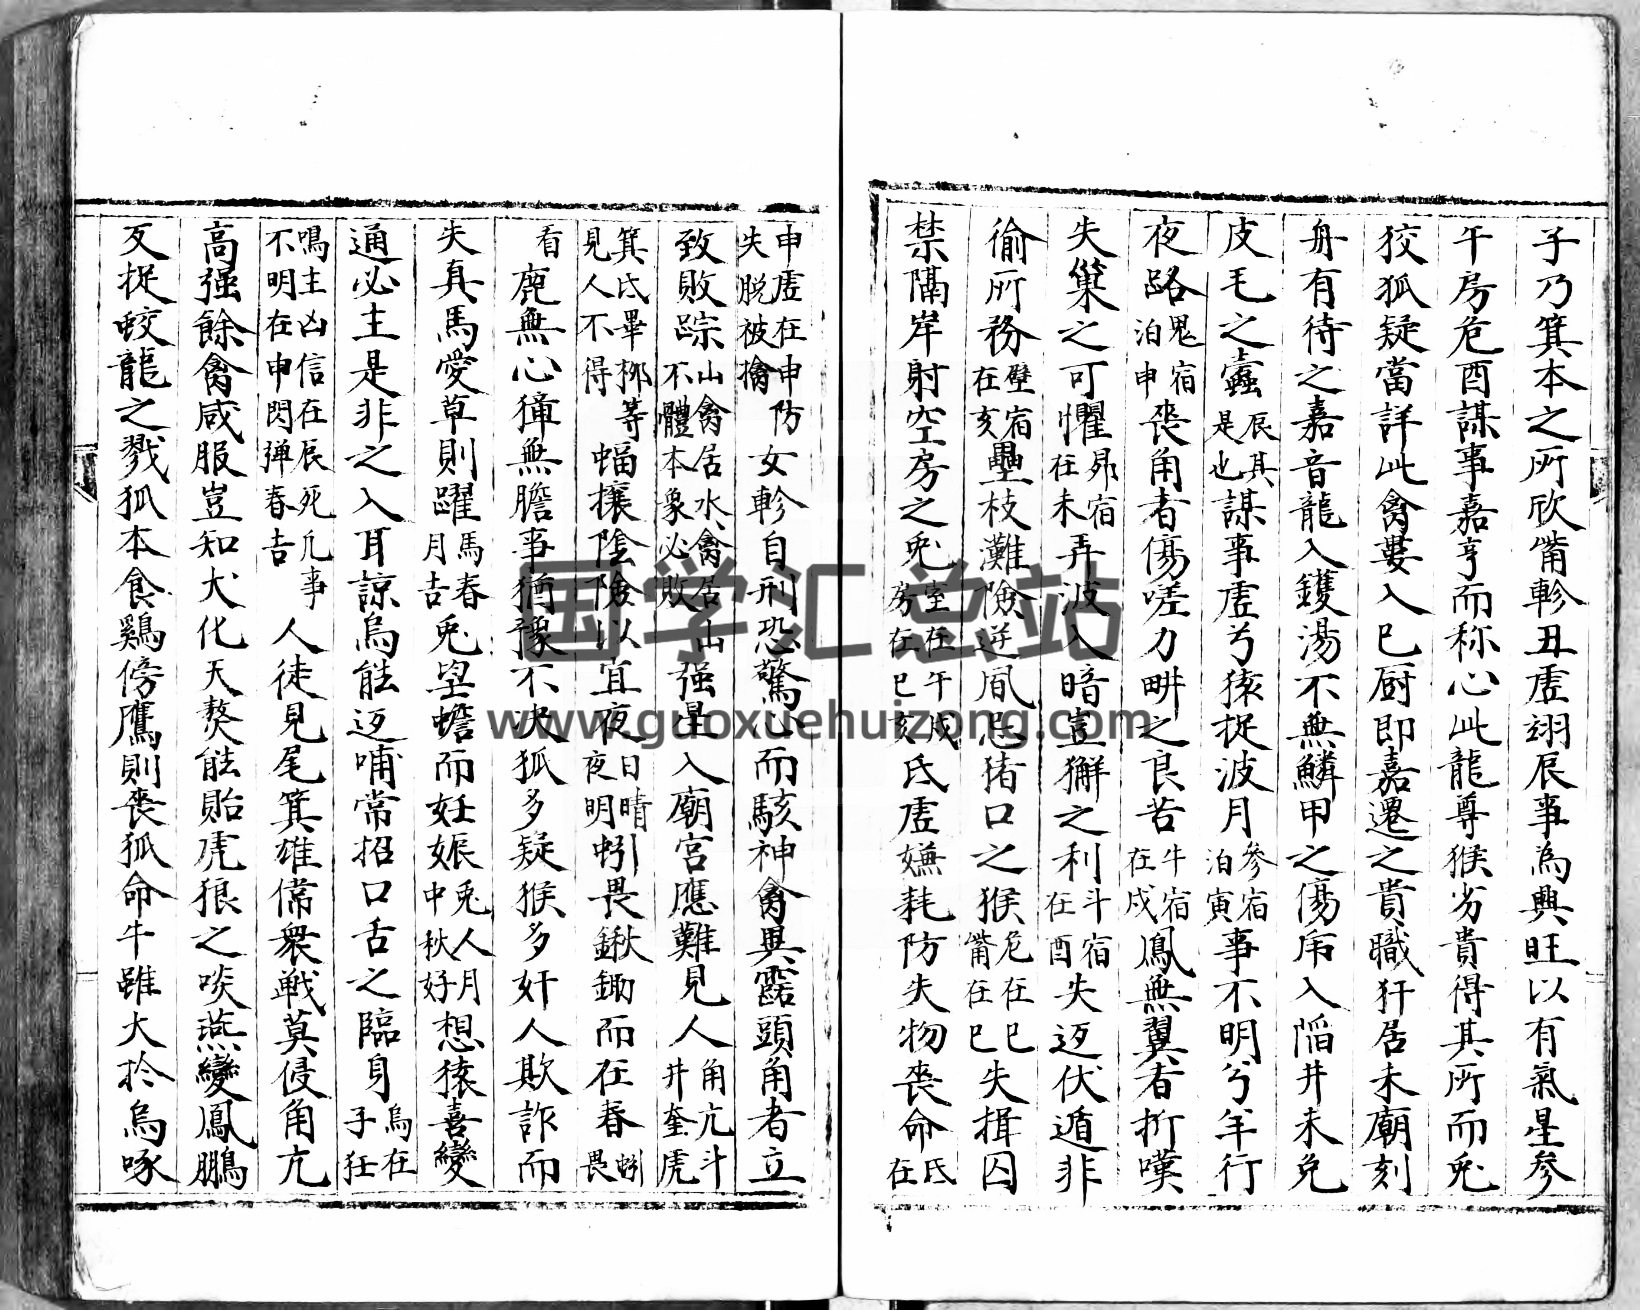 子乃箕本之所欣觜軫丑虛翊辰事為興旺以有氣星參
午房危酉謀事嘉亨而称心此龍尊猴劣貴得其所而兎
狡狐疑當詳此禽婁入巳厨即嘉遷之貴職犴居未廟刻
舟有待之嘉音龍入鑊湯不無鱗甲之傷乕入陷井未免
皮毛之蠹辰其是也謀事虛兮猿捉波月參宿泊寅事不明兮羊行
夜路鬼宿泊申喪角者傷嗟力畊之良苦牛宿在戌鳳無翼者折嘆
失巢之可懼昴宿在未弄波入暗豈獬之利斗宿在酉失迈伏遁非
偷所務壁宿在亥壘枝灘險逆風忌猪口之猴危在巳觜在巳失揖囚
禁隔岸射空房之兎室在午戌房在巳亥氐虛嫌耗防失物喪命氐在
申虛在申失脱被擒防女軫自刑恐驚心而駭神禽異露頭角者立
致敗踪山禽居水禽居山不體本象必敗强星入廟宮應難見人角亢斗井奎虎
箕氐畢柳等見人不得蝠攘陰險以宜夜日晴夜明蚓畏鍬鋤而在春蚓畏
看鹿無心獐無膽事猶豫不决狐多疑猴多奸人欺詐而
失真馬愛草則躍馬春月吉兎望蟾而妊娠兎人月中秋好想猿喜變
通必主是非之入耳諒烏能迈哺常招口舌之臨身烏在子狂
鳴主凶信在辰死凢事不明在申閃弹春吉人徒見尾箕雄俻衆戦莫侵角亢
高强餘禽咸服豈知犬化天獒能貽虎狼之啖燕變鳳鵬
叐捉蛟龍之戮狐本食鷄傍鷹則喪狐命牛雖大扵烏啄
国学汇总站
www.guoxuehuizong.com